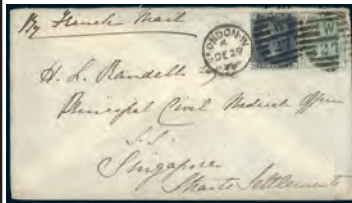 By French Mail
LONDON·W
DE 29
W
H. L. Randell Esq
Principal Civil Medical Officer
S.S.
Singapore
Straits Settlements